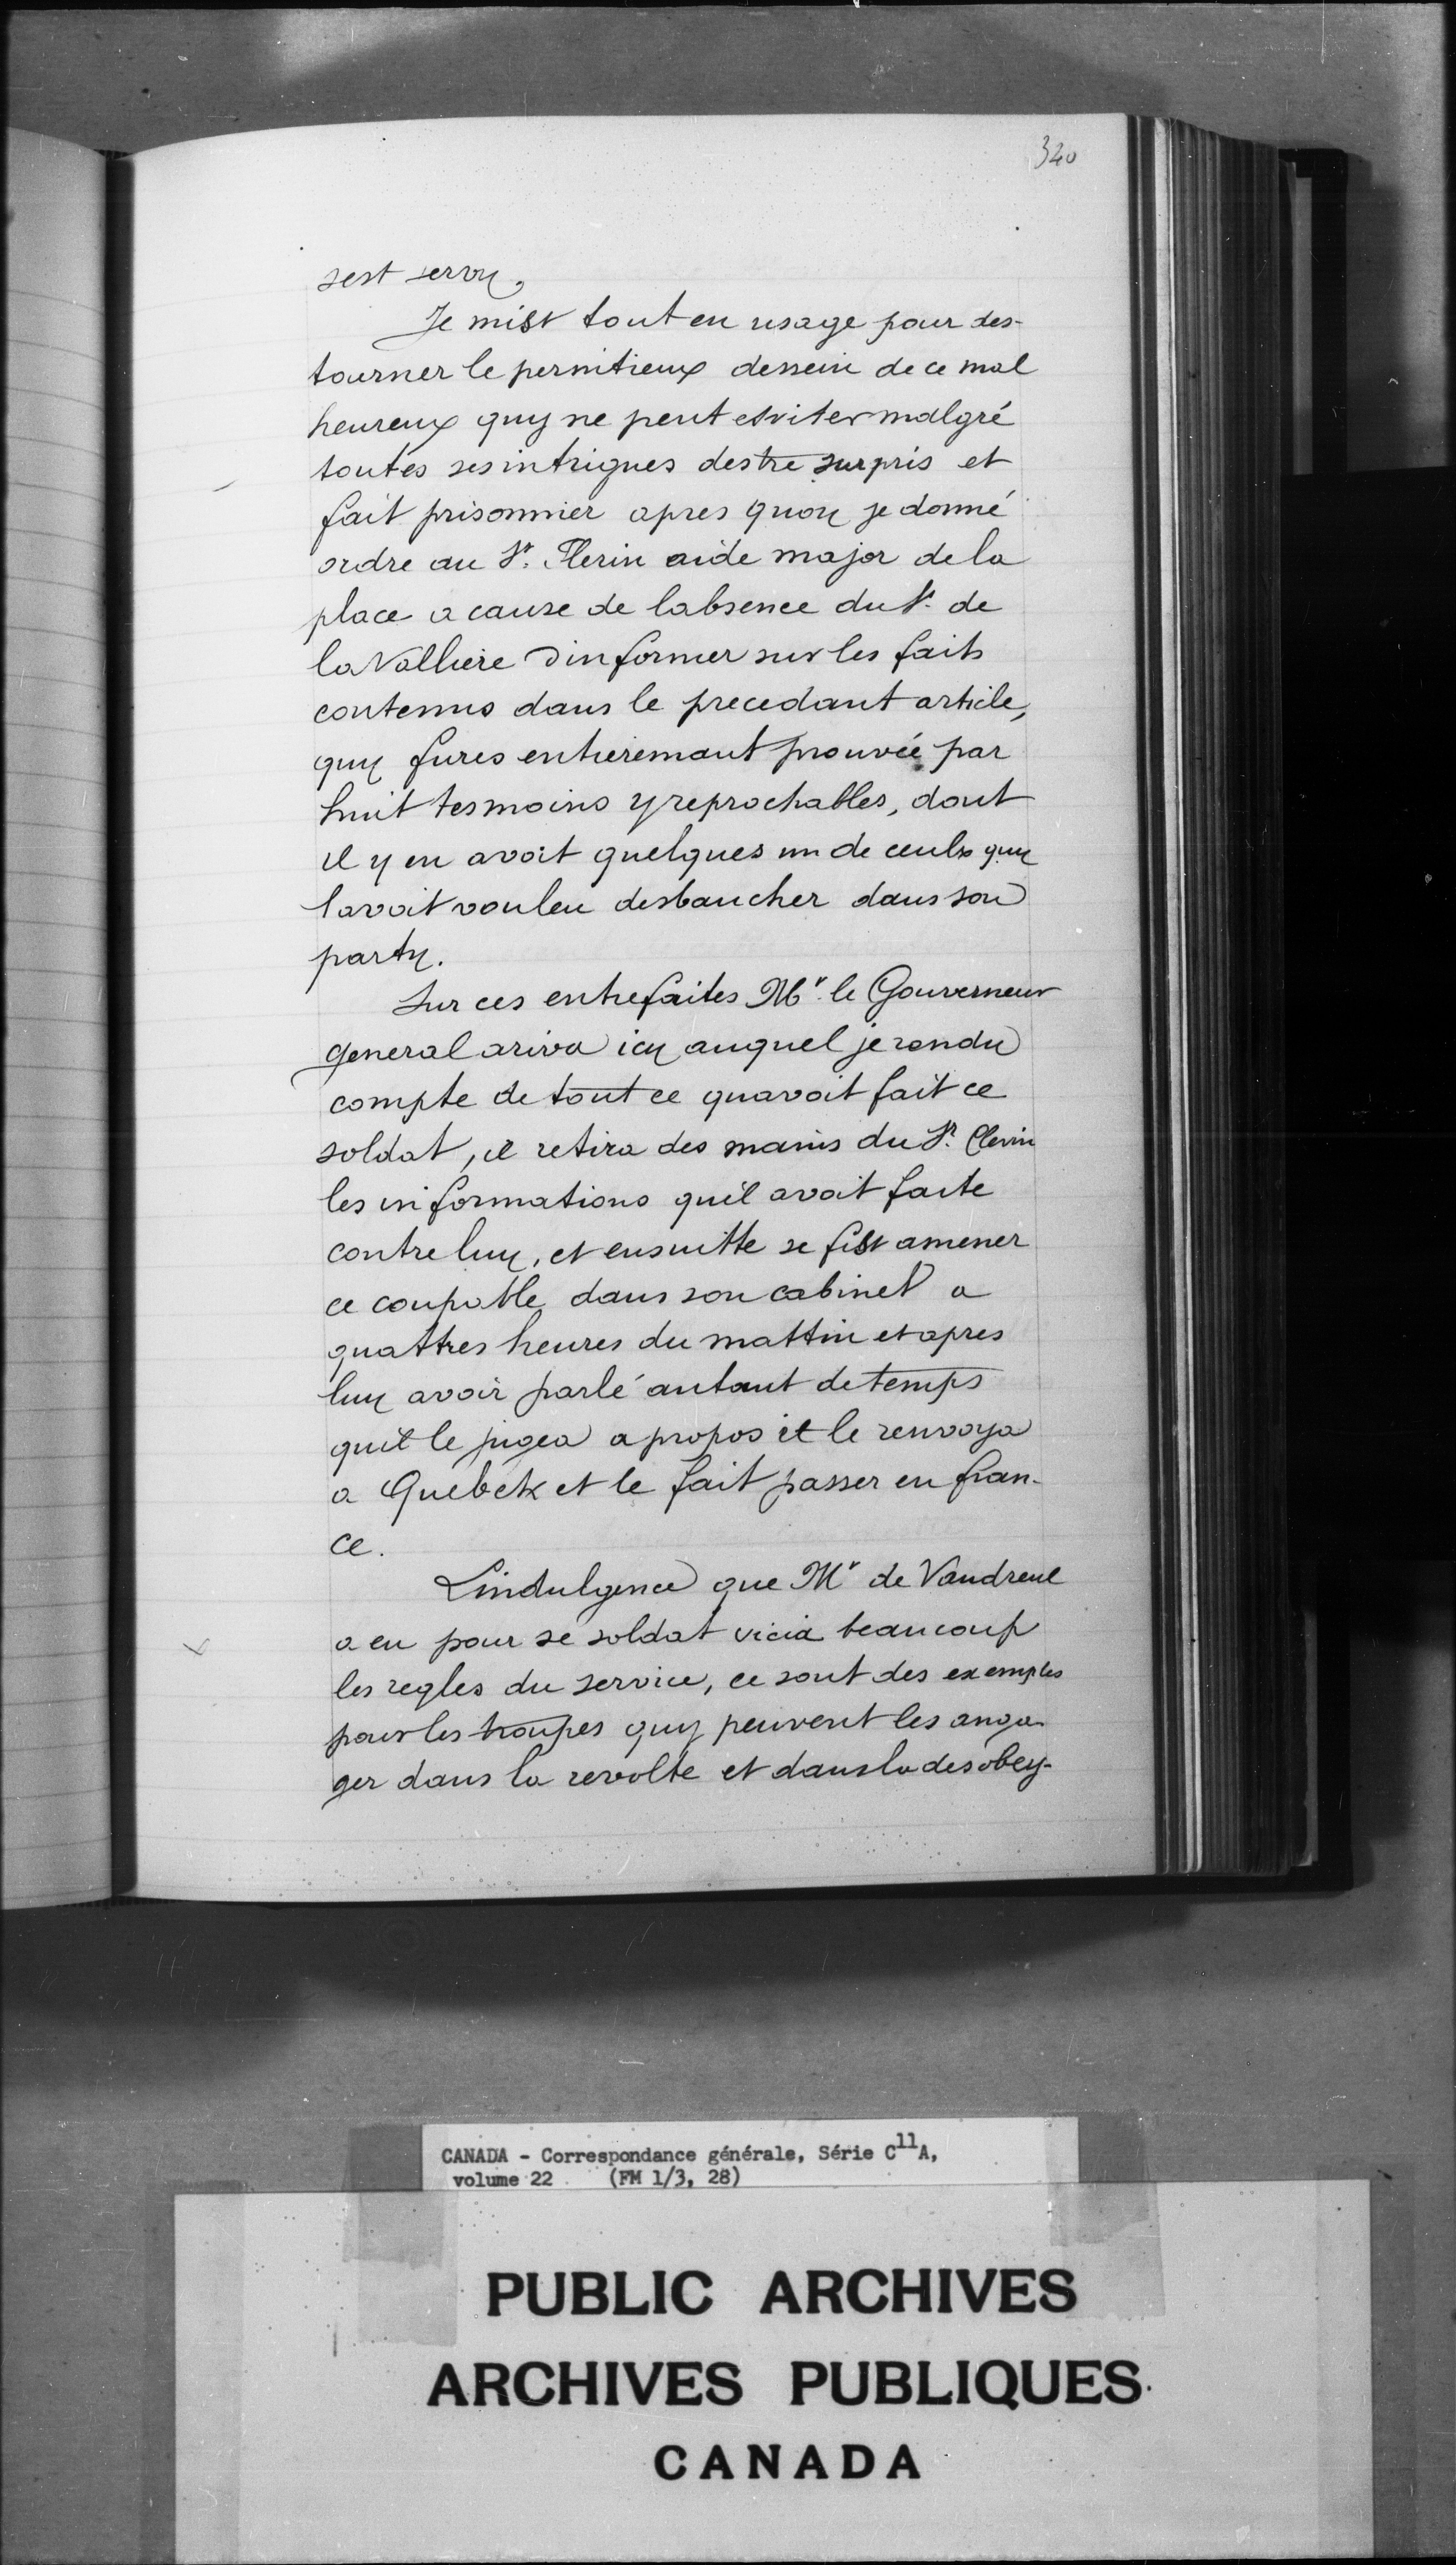 320
sest servy.
Je mist tout en usage pour des-
tourner le pernitieux dessein de ce mal
heureux quy ne peut esviter malgré
toutes ses intrigues destre surpris et
fait prisonnier apres quoy je donné
ordre au Sr. Clerin aide major de la
place a cause de labsence du Sr. de
la Valliere dinformer sur les faits
contenus dans le precedant article,
quy fures entieremant prouvée par
huit tesmoins yreprochables, dont
il y en avoit quelques un de ceulx quy
lavoit vouleu desbaucher dans son
party.
Sur ces entrefaites Mr. le Gouverneur
general ariva icy auquel je rendu
compte de tout ce quavoit fait ce
soldat, il retira des mains du Sr. Clerin
les informations quil avoit faite
contre luy, et ensuitte se fist amener
ce coupable dans son cabinet a
quattres heures du mattin et apres
luy avoir parlé autant de temps
quil le jugea a propos il le renvoya
a Quebek et le fait passer en fran-
ce.
Lindulgence que Mr de Vaudreul
a eu pour se soldat vicia beaucoup
les regles du service, ce sont des exemples
pour les troupes quy peuvent les anga-
ger dans la revolte et dans la desobey-
CANADA - Correspondance générale, Série C11A,
volume 22 (FM 1/3, 28)
PUBLIC ARCHIVES
ARCHIVES PUBLIQUES
CANADA